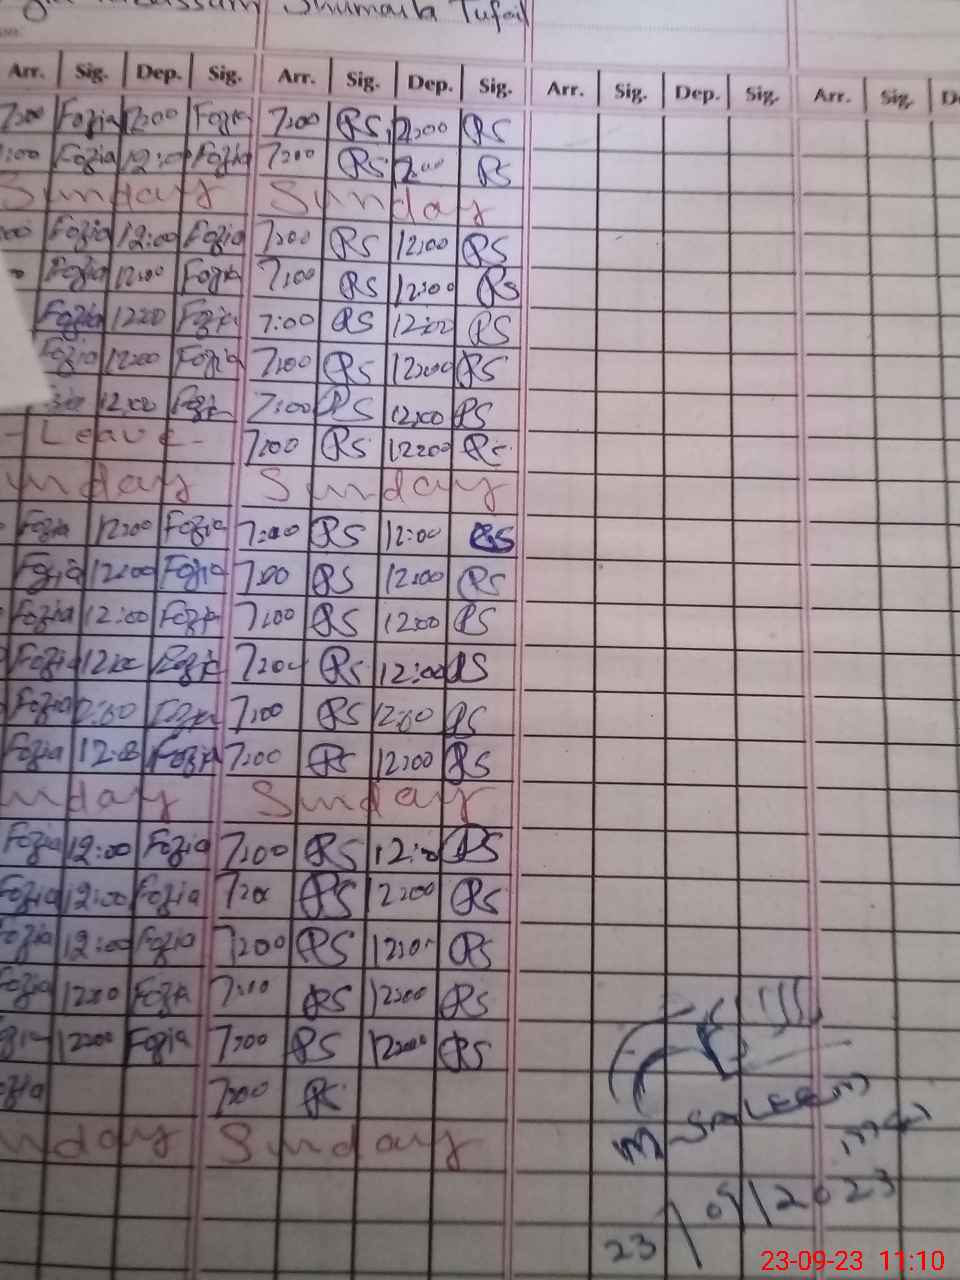 Shumaila Tufail
Arr. Sig. Dep. Sig. Arr. Sig. Dep. Sig. Arr. Sig. Dep. Sig. Arr. Sig.
7:00 Fozia 12:00 Fozia 7:00 RS 12:00 RS
:00 Fozia 12:00 Fozia 7:00 RS 12:00 RS
Sunday Sunday
:00 Fozia 12:00 Fozia 7:00 RS 12:00 RS
Fozia 12:00 Fozia 7:00 RS 12:00 RS
Fozia 12:00 Fozia 7:00 RS 12:00 RS
Fozia 12:00 Fozia 7:00 RS 12:00 RS
12:00 Fozia 7:00 RS 12:00 RS
- Leave - 7:00 RS 12:00 RS
unday Sunday
Fozia 12:00 Fozia 7:00 RS 12:00 RS
Fozia 12:00 Fozia 7:00 RS 12:00 RS
Fozia 12:00 Fozia 7:00 RS 12:00 RS
Fozia 12:00 Fozia 7:00 RS 12:00 RS
Fozia 12:00 Fozia 7:00 RS 12:00 RS
Fozia 12:00 Fozia 7:00 RS 12:00 RS
unday Sunday
Fozia 12:00 Fozia 7:00 RS 12:00 RS
Fozia 12:00 Fozia 7:00 RS 12:00 RS
Fozia 12:00 Fozia 7:00 RS 12:00 RS
Fozia 12:00 Fozia 7:00 RS 12:00 RS
12:00 Fozia 7:00 RS 12:00 RS
ozia 7:00 RS
unday Sunday
M Saleem
23/09/2023
23-09-23 11:10